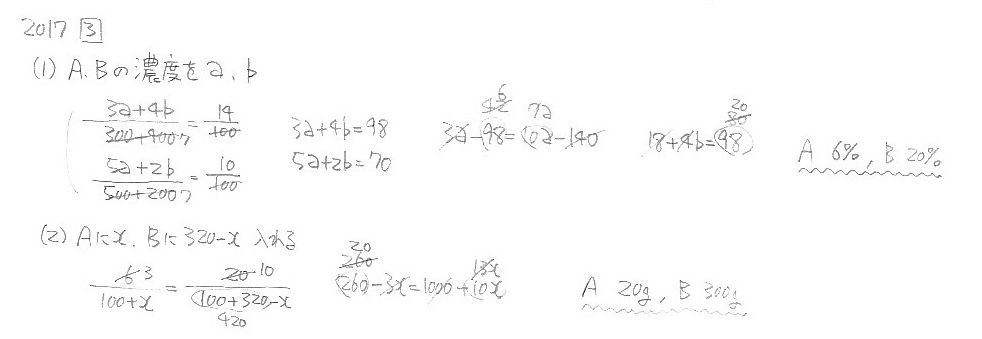 2017 3
(1) A.Bの濃度をa、b
3a+4b/300+400 7 = 14/100
5a+2b/500+200 7 = 10/100
3a+4b=98
5a+2b=70
3a-98=10a-140
6 7a
18+4b=98
20 80
A 6%, B 20%
(2) Aにx、Bに320-x 入れる
6 3/100+x = 20 10/100+320-x
420
1260-3x=1000+10x
20 260 13x
A 20g, B 300g